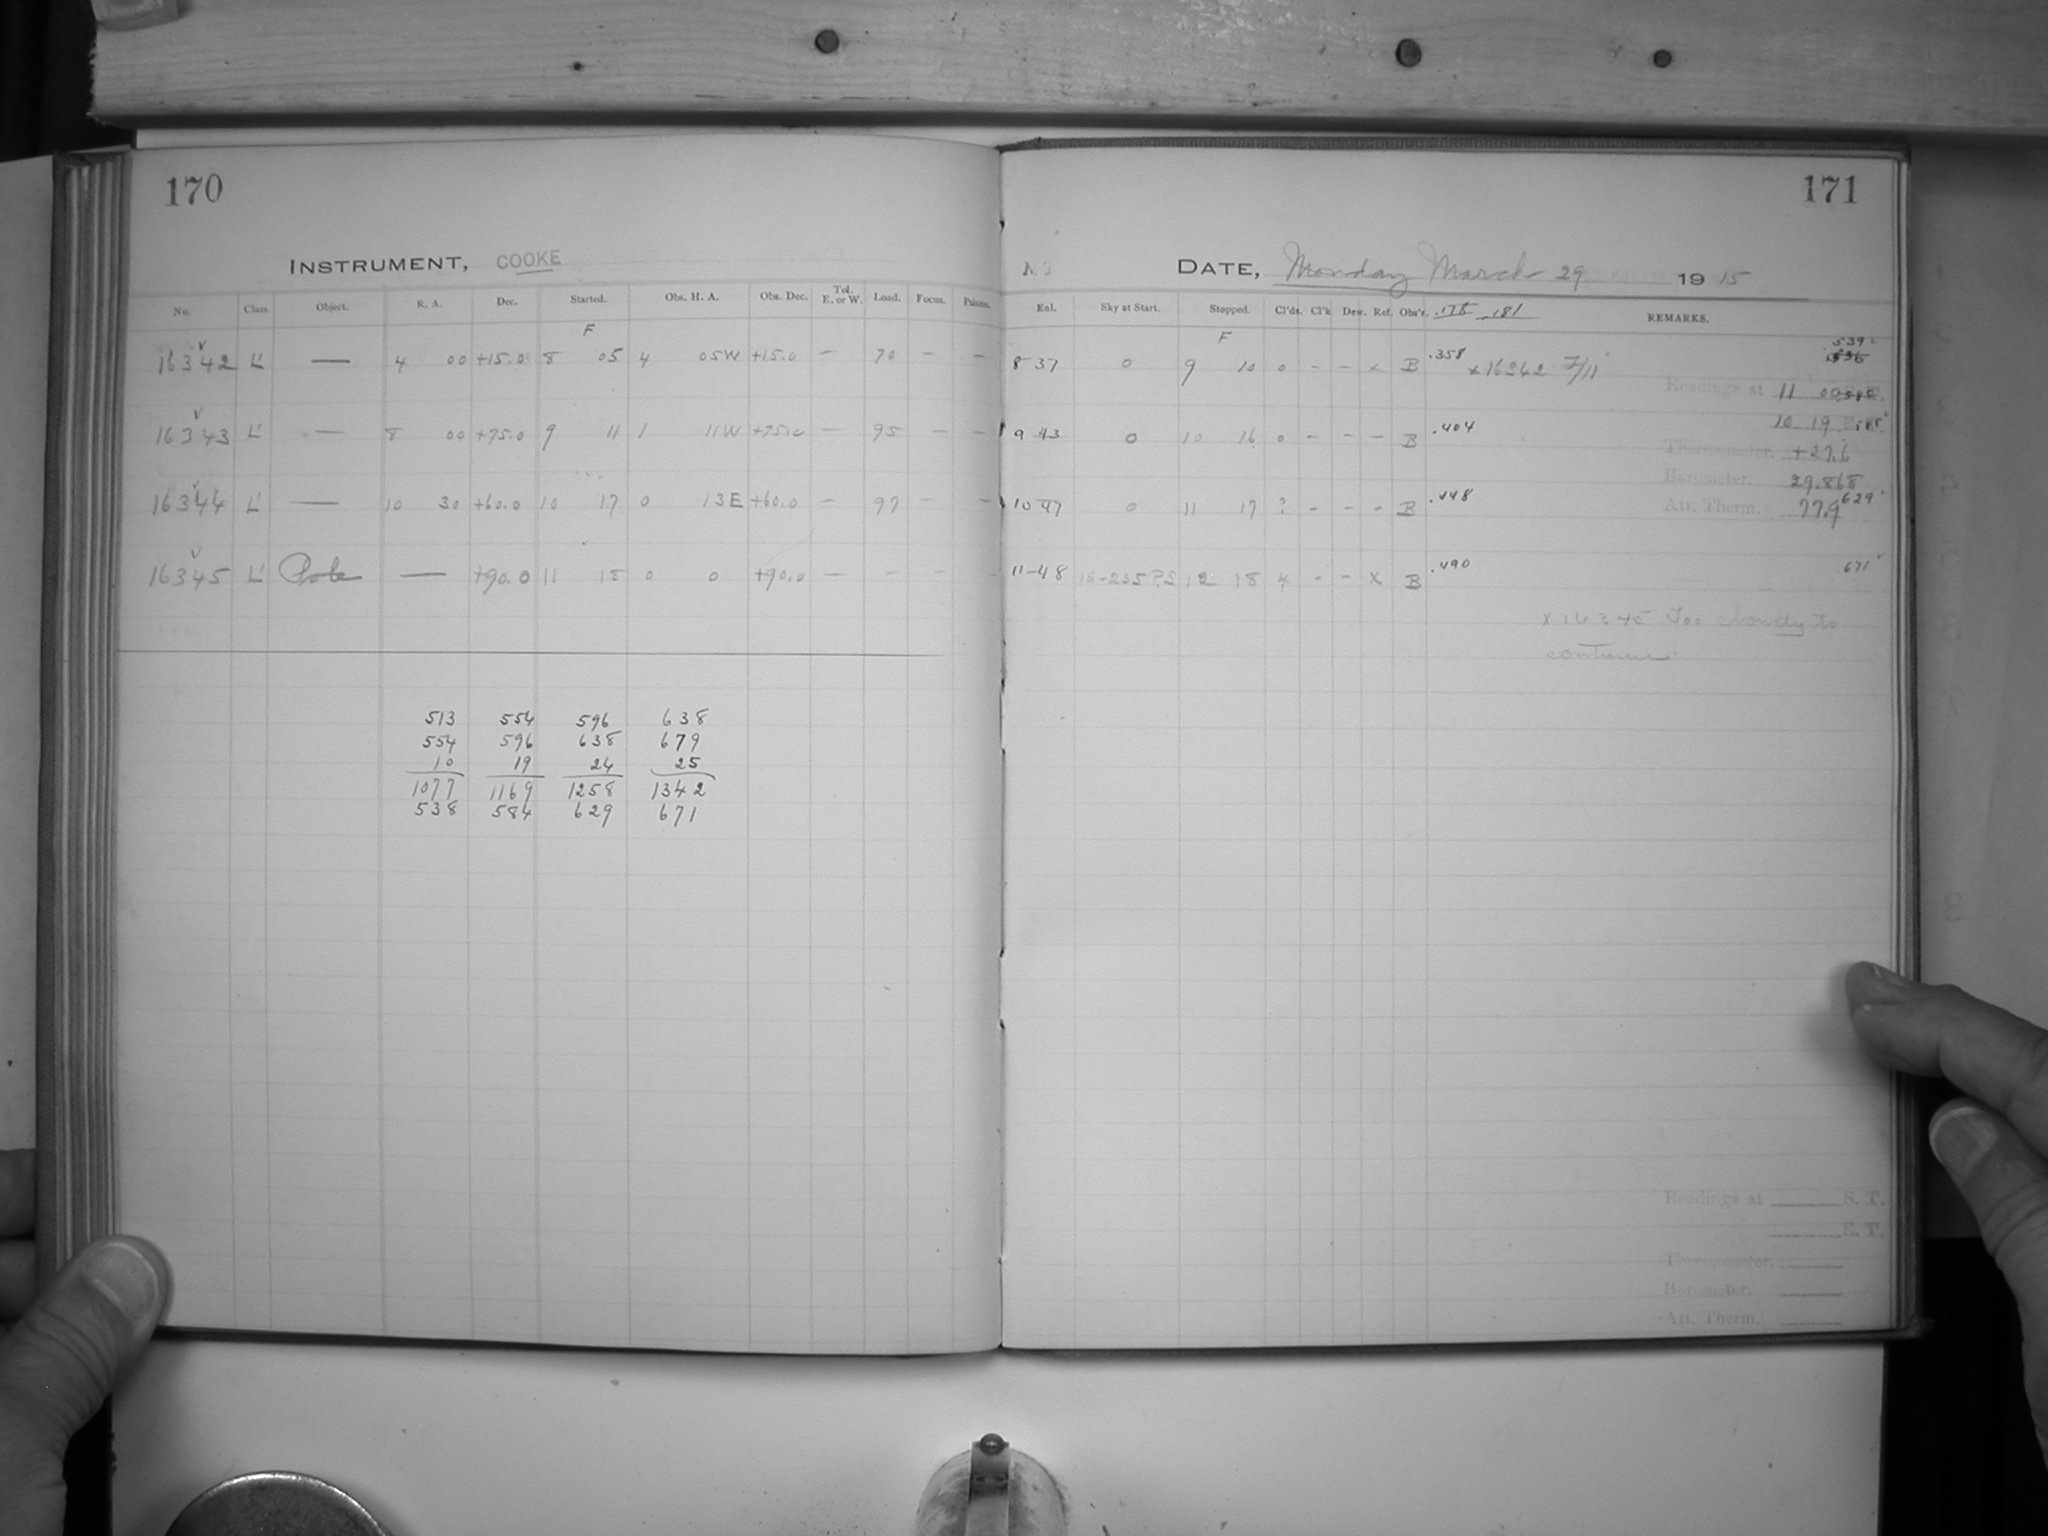 170
INSTRUMENT, COOKE
No. Class. Object. R. A. Dec. Started. Obs. H. A. Obs. Dec. Tel. E. or W. Load. Focus. Prisms.
F
16342 L' — 4 00 +15.0 8 05 4 05W +15.0 — 70 — —
16343 L' — 8 00 +75.0 9 11 1 11W +75.0 — 95 — —
16344 L' — 10 30 +60.0 10 17 0 13E +60.0 — 97 — —
16345 L' Pole — +90.0 11 18 0 0 +90.0 — - - -
513 554 596 638
554 596 638 679
10 19 24 25
1077 1169 1258 1342
538 584 629 671
171
DATE, Monday March 29 1915
Enl. Sky at Start. Stopped. Cl'ds. Cl'k Dew. Ref. Obs'r. .178 .181 REMARKS.
F
8 37 0 9 10 0 - - x B .358 x16342 F/11 .539
Readings at 11 00
9 43 0 10 16 0 - - - B .404
10 19
Thermometer. +27.6
Barometer. 29.868
10 47 0 11 17 ? - - - B .448 629
Att. Therm. 77.9
11-48 12 18 4 - - x B .490 671
x 16345 Too cloudy to
continue.
Readings at S. T.
E. T.
Thermometer.
Barometer.
Att. Therm.